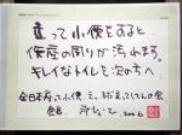 立って小便をすると
便座の周りが汚れます。
キレイなトイレを次の方へ
全日本座って小便を
の会
会長